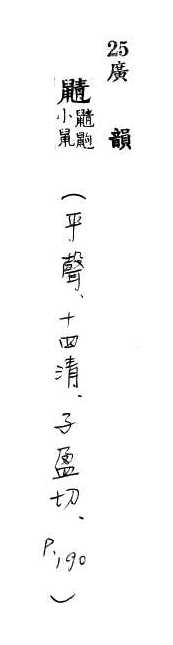 25廣韻
鼱鼱鼩小鼠(平聲、十四清、子盈切、P.190)